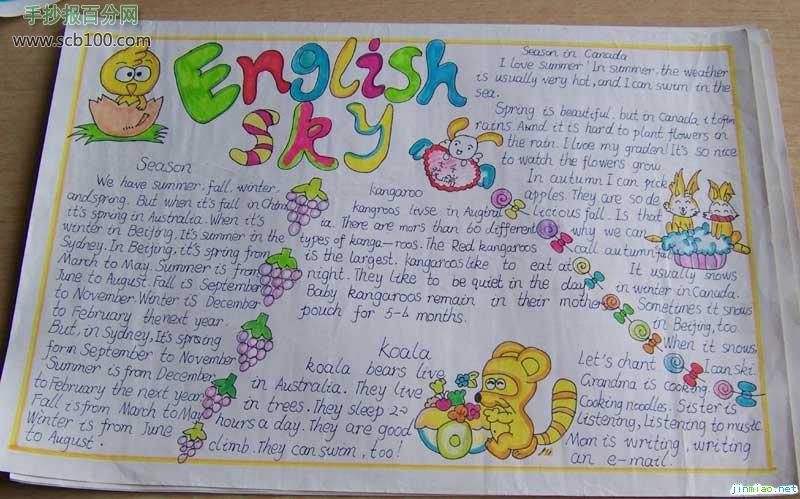 手抄报百分网
www.scb100.com
English
sky
Season
We have summer, fall, winter,
andspring. But when it's fall in China
it's spring in Australia. When it's
winter in Beijing, It's summer in the
Sydney. In Beijing, it's spring from
March to May. Summer is from
June to August. Fall is September
to November. Winter is December
to February the next year.
But, in Sydney, It's spring
form September to November
Summer is from December
to February the next year.
Fall is from March to May
Winter is from June
to August.
kangaroo
kangroos livse in Augtral
ia. There are mors than 60 different
types of kanga-roos. The Red kangaroos
is the largest. kangaroos like to eat at
night. They like to be quiet in the day
Baby kangaroos remain in their mother
pouch for 5-6 months.
Koala
koala bears live
in Australia. They live
in trees. They sleep 20
hours a day. They are good
climb. They can swim, too!
Season in Canada
I love summer! In summer, the weather
is usually very hot, and I can swim in the
sea.
Spring is beautiful, but in Canada it often
rains. And it is hard to plant flowers in
the rain. I lvoe my graden! It's so nice
to watch the flowers grow
In autumn I can pick
apples. They are so de
licious fall. Is that
why we can
call autumn fall
It usually snows
in winter in Canada.
Sometimes it snows
in Beijing, too.
When it snows
I can ski.
Let's chant
Grandma is cooking.
Cooking noodles. Sister is
listening, Listening to music
Mom is writing, writing
an e-mail.
jinmiao.net